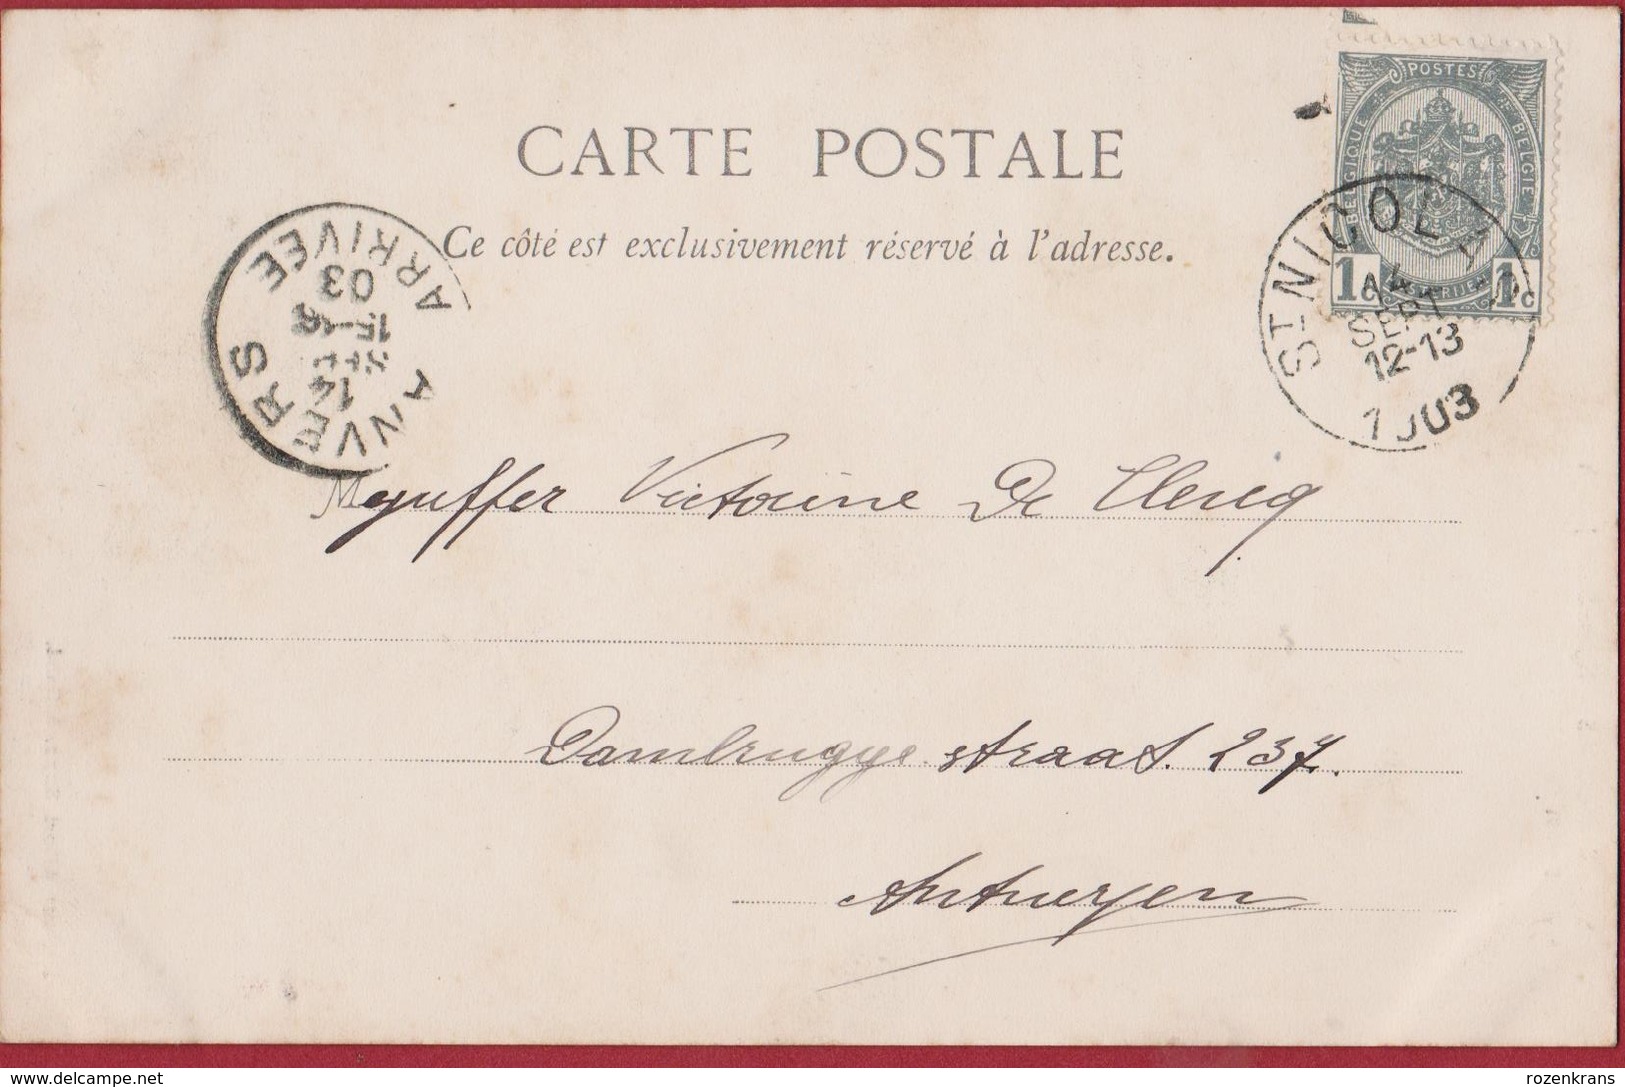 POSTES
BELGIQUE BELGIE
1c 1c
CARTE POSTALE
Ce côté est exclusivement réservé à l'adresse.
ST NICOLA
14
SEPT
12-13
1903
ANVERS
14
15-16
03
ARRIVÉE
Mejuffer Victorine De Clercq
Dambruggestraat. 237.
Antwerpen
delcampe.net
rozenkrans